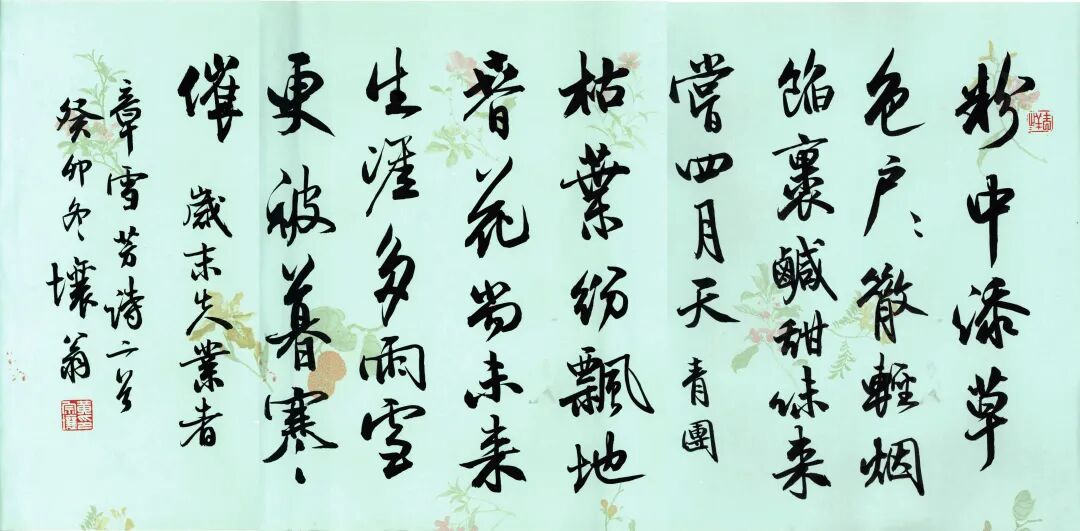 粉中添草
色户〻散輕烟
餡裏鹹甜味来
嘗四月天 青團
枯葉纷飘地
春花尚未来
生涯多雨雪
更被暮寒〻
催 歲末失業者
章雪芳詩二首
癸卯冬 壤翁